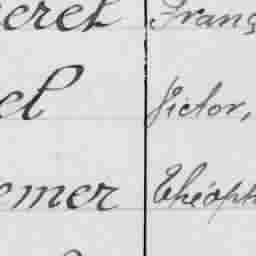 ecret Franç
el Victor,
emer Théoph